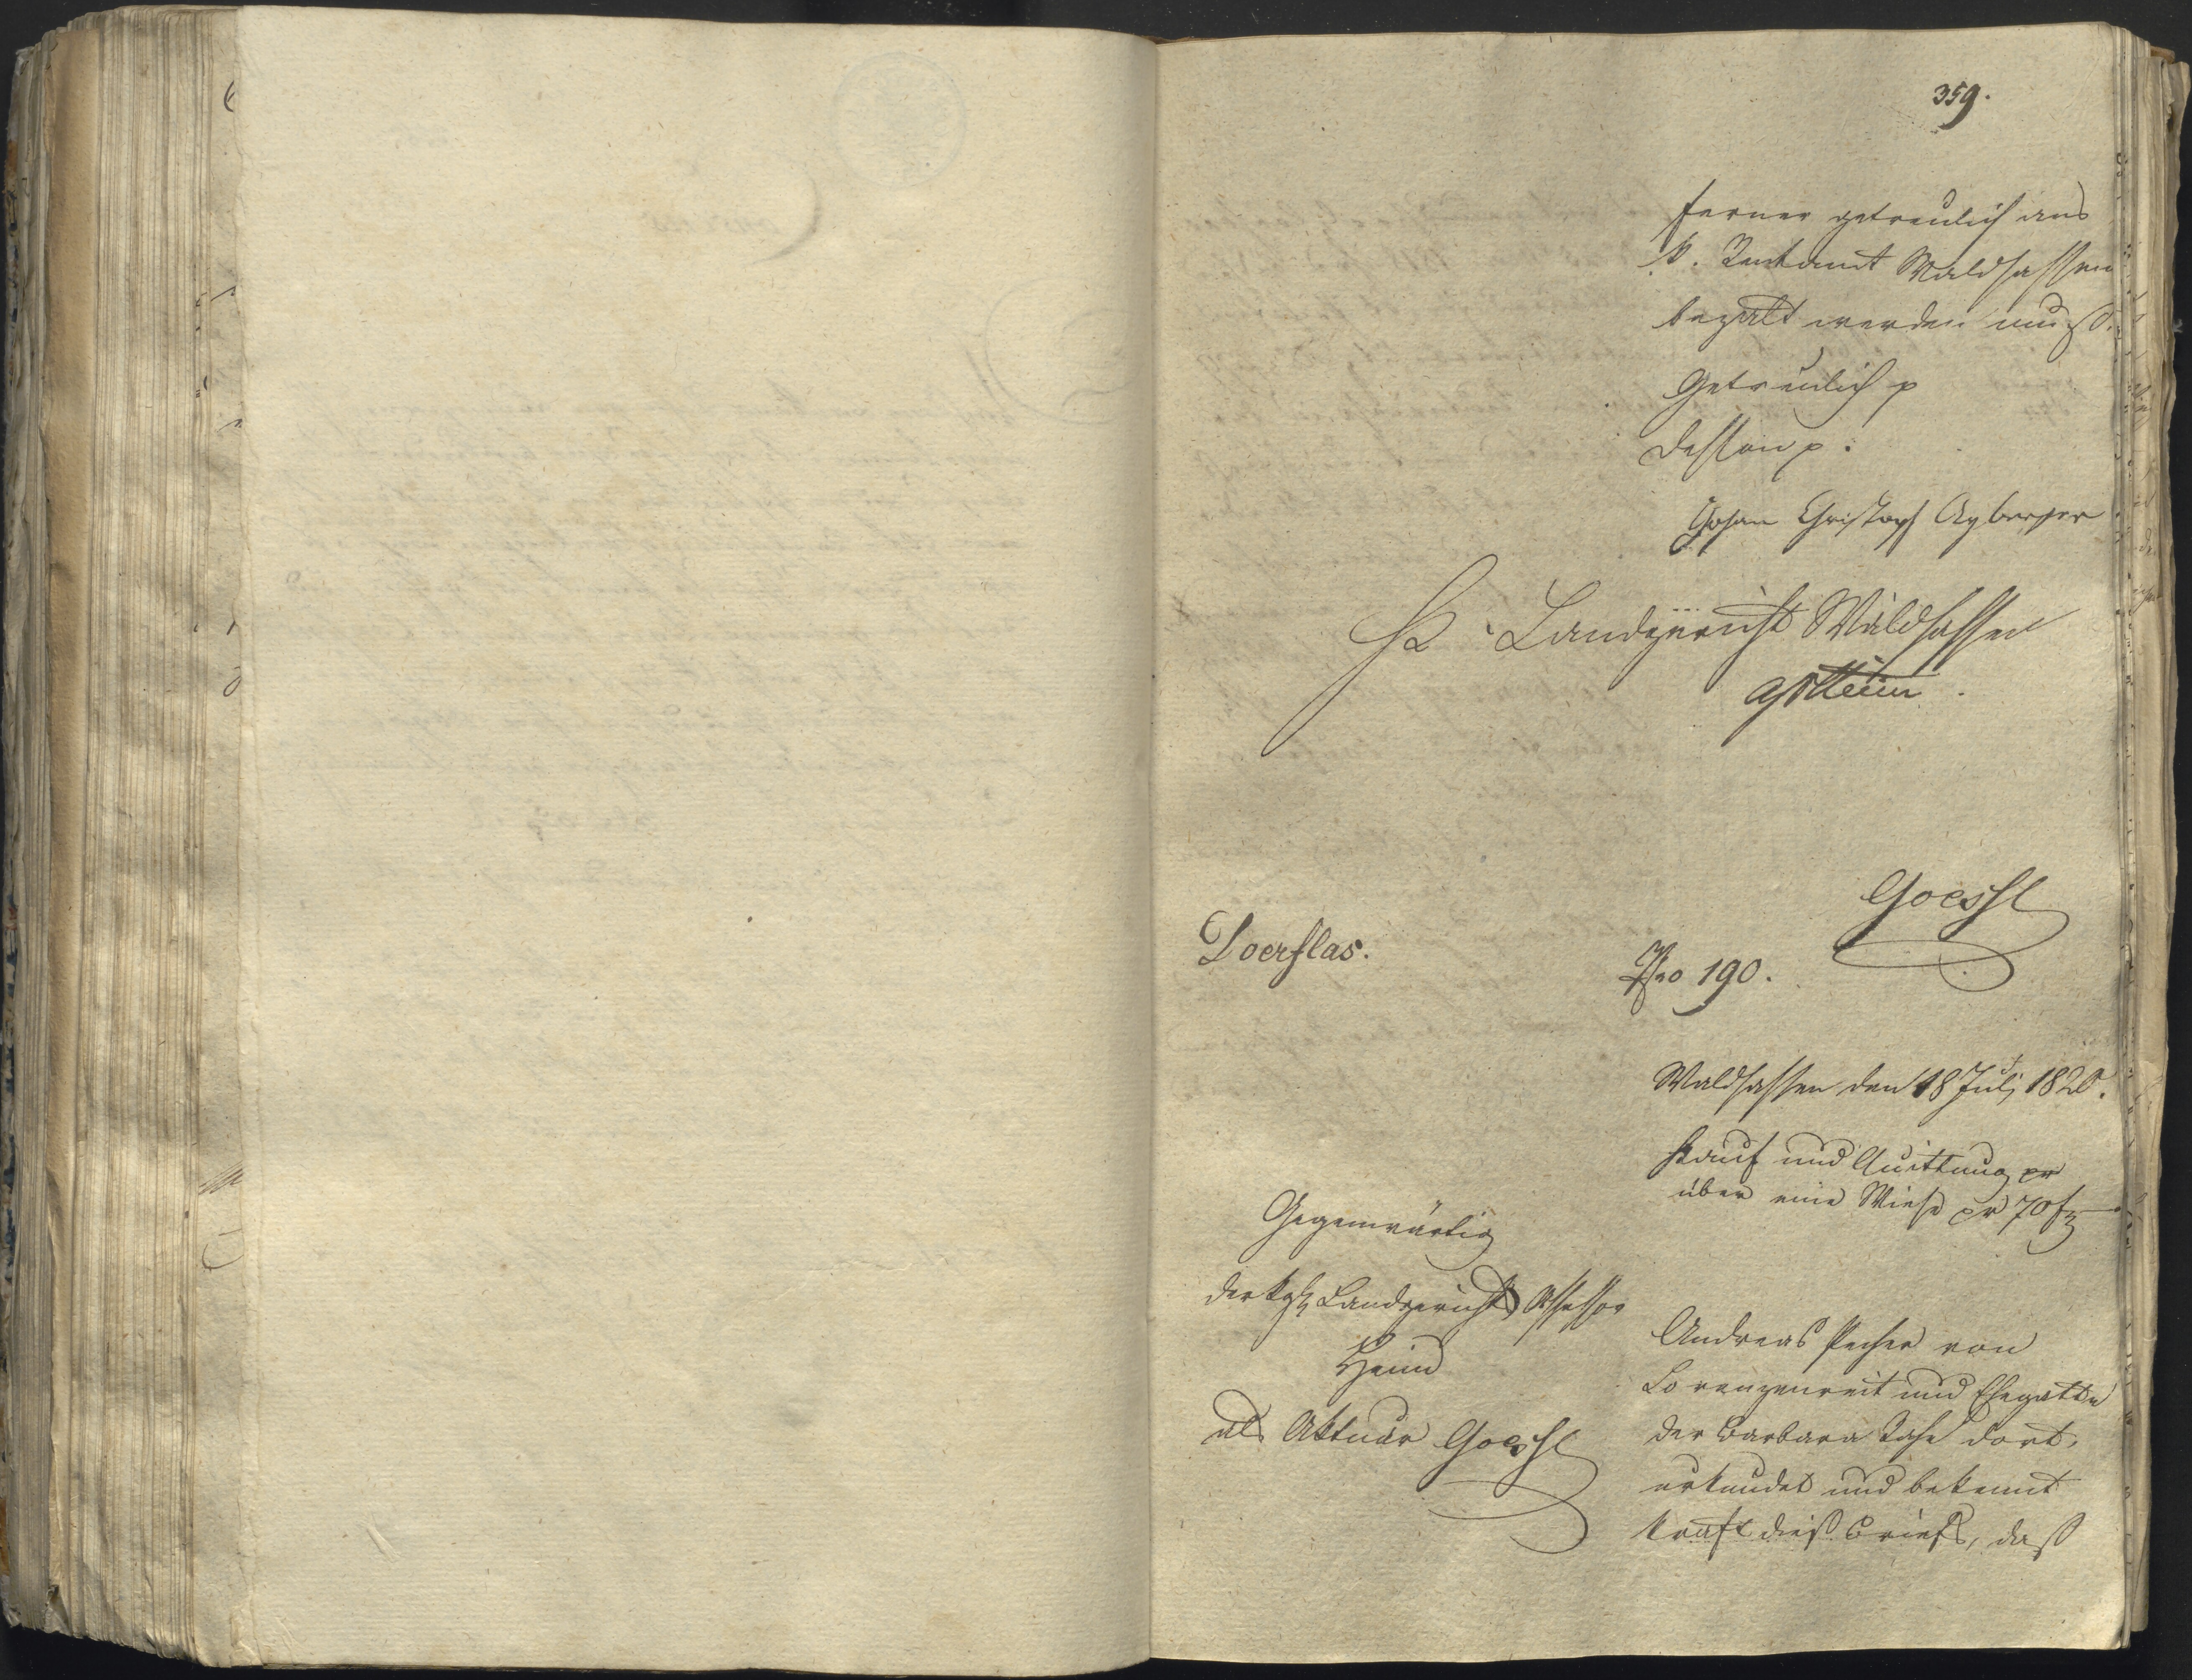 359.
ferner getreulich ans
k. Rentamt Waldsassen
bezalt werden muß.
Getreulich p
dessen p.
Johan Christoph
K. Landgericht Waldsassen
Goessl
Doerflas.
Nro 190.
Waldsassen den 18 Juli 1820.
Kauf und Quittung pr
über eine Wiese pr 70 f
Gegenwärtig
der kgl Landgerichts Assessor
als Aktuar Goessl
Andreas von
Lorenzenreit und Ehegatte
der Barbara dort,
urkundet und bekennt
kraft dieß Briefs, daß